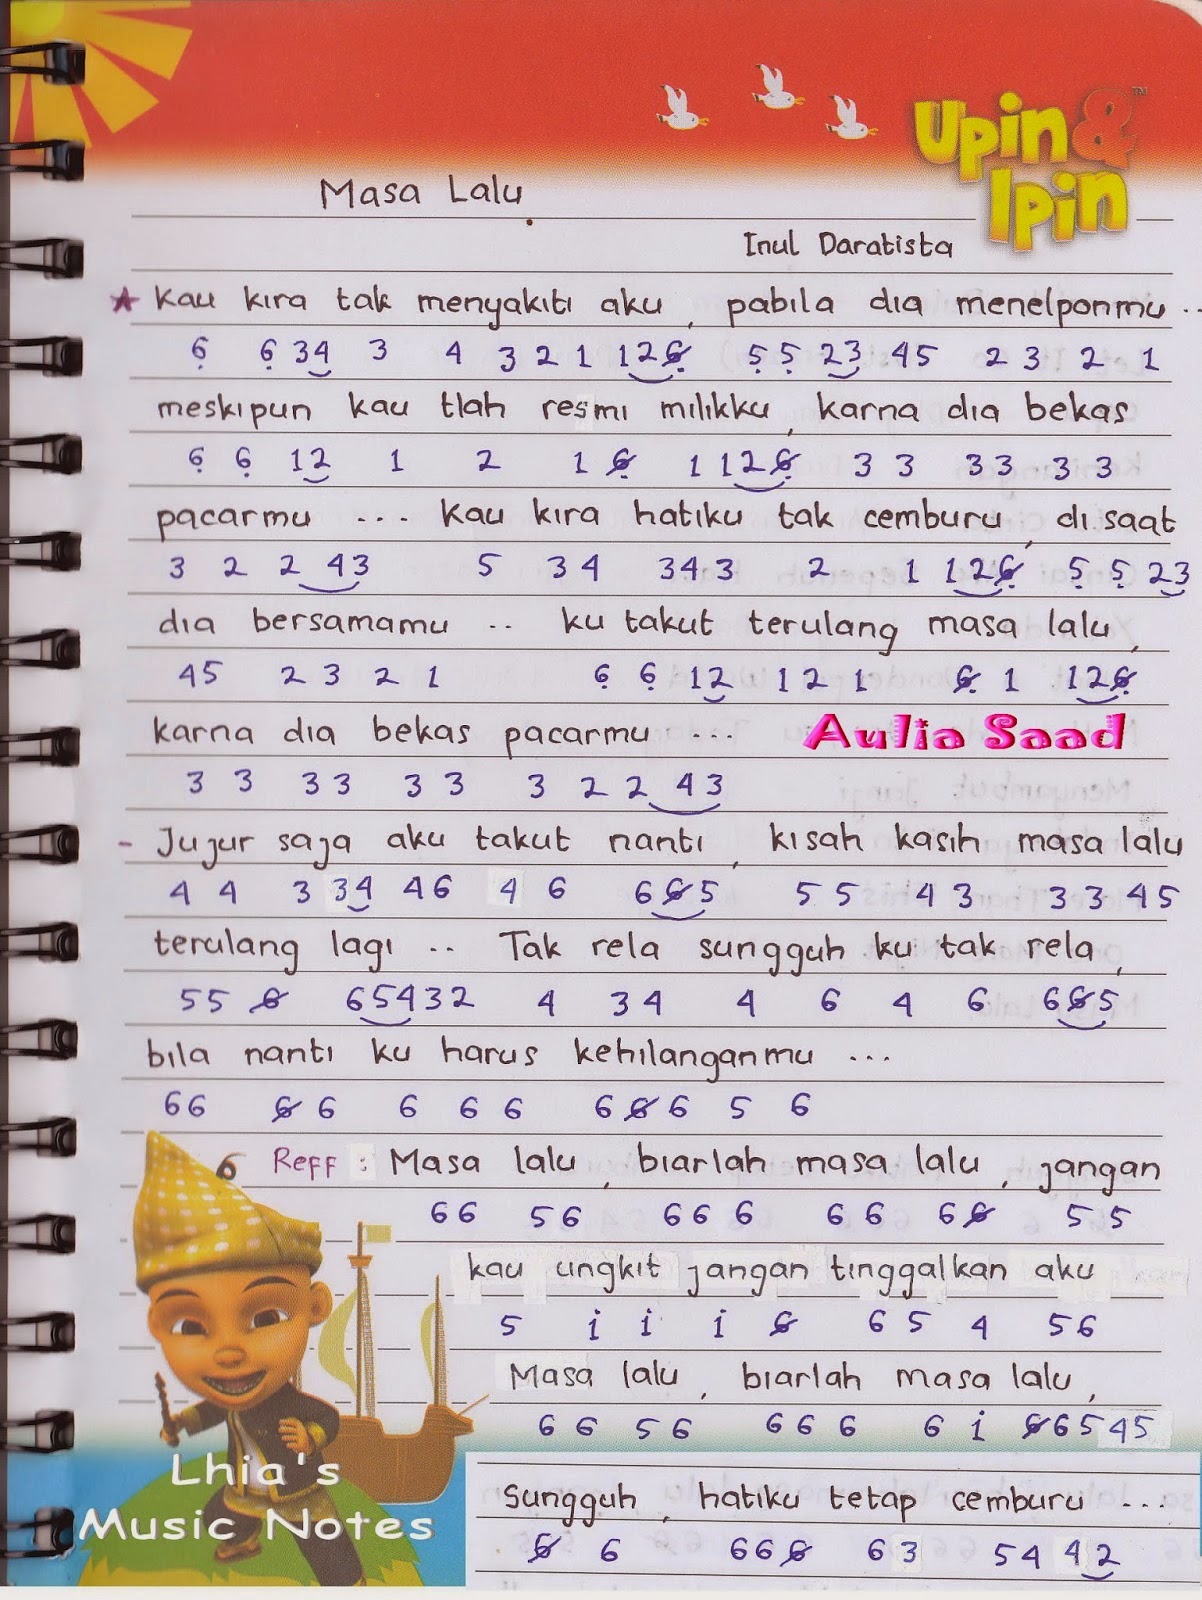 Upin &™
Ipin
Masa Lalu
Inul Daratista
★ Kau kira tak menyakiti aku, pabila dia menelponmu ..
6̣ 6̣ 34 3 4 3 2 1 126̸̣ 5̣ 5̣ 23 45 2 3 2 1
meskipun kau tlah resmi milikku, karna dia bekas
6̣ 6̣ 12 1 2 1 6̸̣ 1 126̸̣ 3 3 33 33
pacarmu ... kau kira hatiku tak cemburu, di saat
3 2 2 43 5 34 343 2 1 126̸̣ 5̣ 5̣ 23
dia bersamamu .. ku takut terulang masa lalu,
45 2 3 2 1 6̣ 6̣ 12 121 6̸̣ 1 126̸̣
karna dia bekas pacarmu ...
Aulia Saad
3 3 33 33 3 2 2 43
- Jujur saja aku takut nanti, kisah kasih masa lalu
4 4 3 34 46 4 6 66̸5 55 43 33 45
terulang lagi .. Tak rela sungguh ku tak rela,
55 6̸ 65432 4 34 4 6 4 6 66̸5
bila nanti ku harus kehilanganmu ...
66 6̸ 6 6 6 6 6 6̸ 6 5 6
6 Reff : Masa lalu, biarlah masa lalu, jangan
66 56 66 6 66 66̸ 55
kau ungkit jangan tinggalkan aku
5 i i i 6̸ 65 4 56
Masa lalu, biarlah masa lalu,
66 56 666 6 i 6̸65 45
Lhia's
Music Notes
Sungguh, hatiku tetap cemburu ...
6̸ 6 666̸ 63 54 42